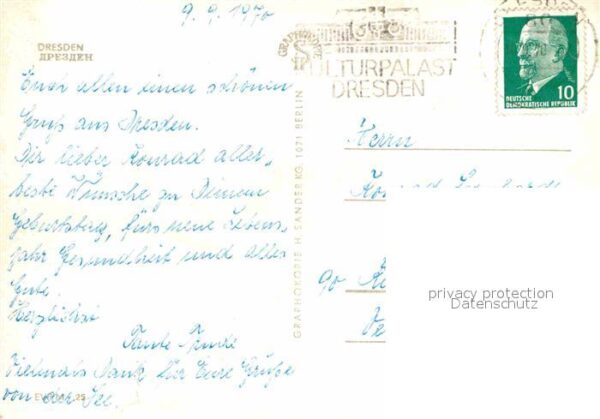 9. 9. 1970
DRESDEN
ДРЕЗДЕН
Euch allen einen schönen
Gruß aus Dresden.
Dir lieber Konrad aller-
beste Wünsche zu Deinem
Geburtstag, fürs neue Lebens-
jahr Gesundheit und alles
Gute.
Herzlichst
Tante
Vielmals Dank für Eure Grüße
von der See.
GRAPHOKOPIE H. SANDER KG, 1071 BERLIN
GRAPHOKOPIE
KULTURPALAST
DRESDEN
DEUTSCHE
DEMOKRATISCHE REPUBLIK
10
Herrn
privacy protection
Datenschutz